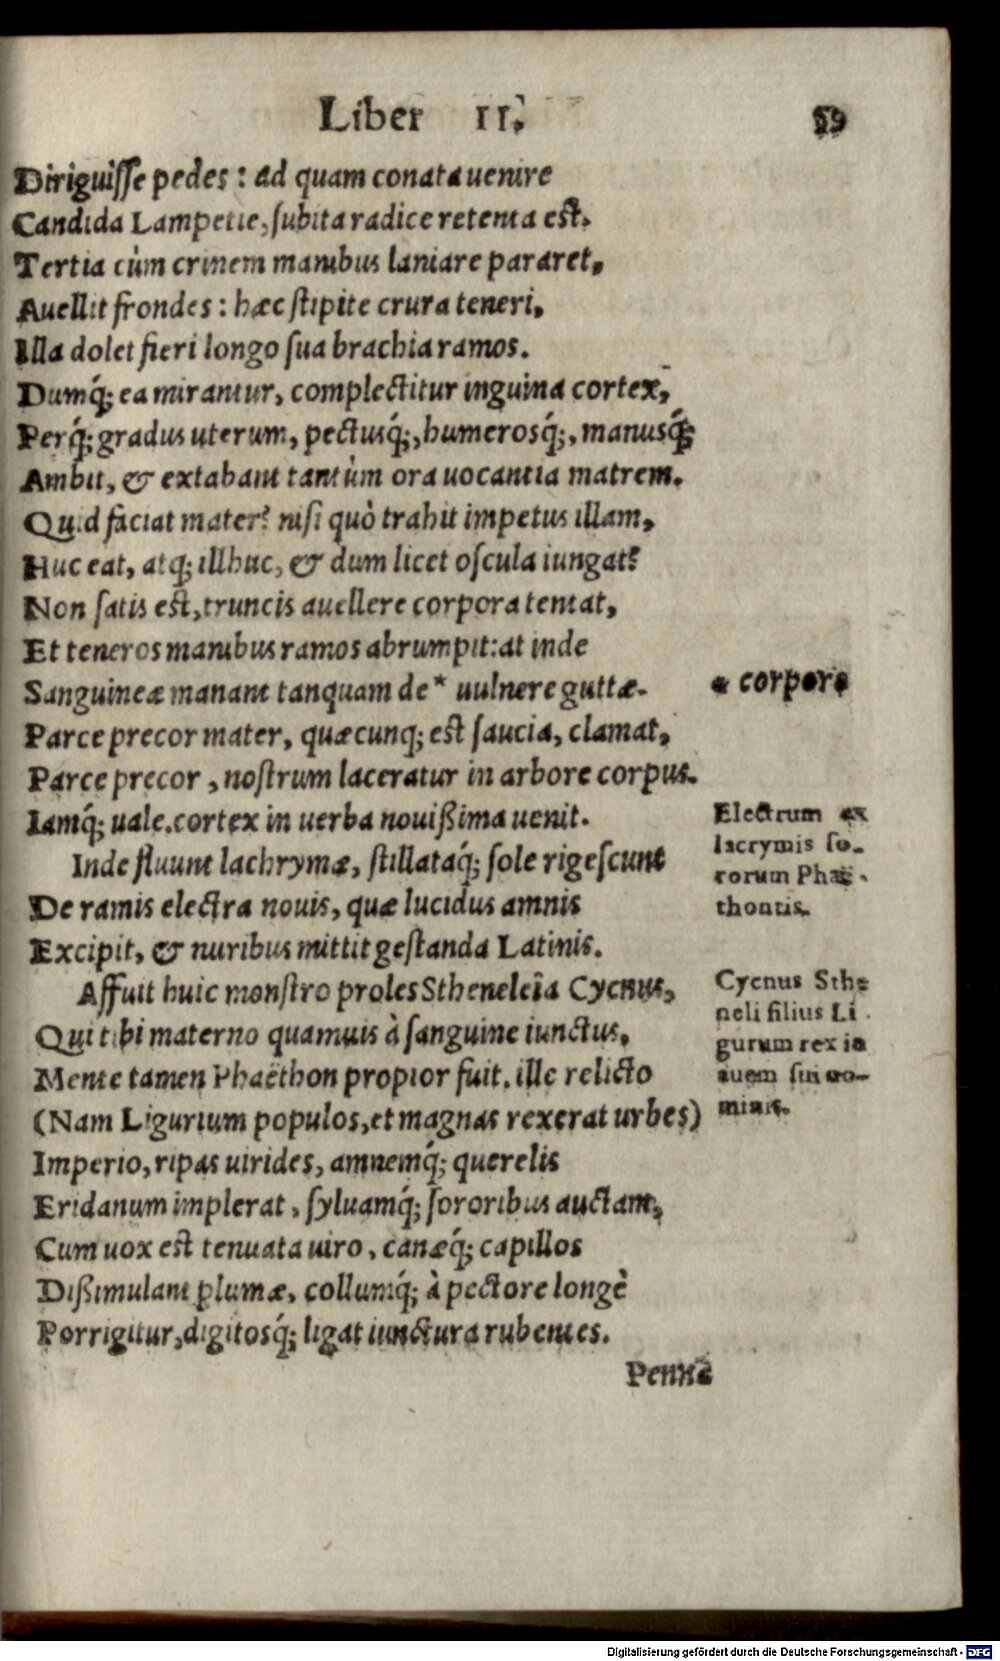 Liber II.
59
Diriguisse pedes: ad quam conata uenire
Candida Lampetie, subita radice retenta est.
Tertia cùm crinem manibus laniare pararet,
Auellit frondes: hæc stipite crura teneri,
Illa dolet fieri longo sua brachia ramos.
Dumq́; ea mirantur, complectitur inguina cortex,
Perq́; gradus uterum, pectusq́;, humerosq́;, manusq́;
Ambit, & extabant tantùm ora uocantia matrem.
Quid faciat mater? nisi quò trahit impetus illam,
Huc eat, atq; illhuc, & dum licet oscula iungat?
Non satis est, truncis auellere corpora tentat,
Et teneros manibus ramos abrumpit: at inde
Sanguineæ manant tanquam de * uulnere guttæ.
* corpore
Parce precor mater, quæcunq; est saucia, clamat,
Parce precor, nostrum laceratur in arbore corpus.
Iamq́; uale. cortex in uerba nouißima uenit.
Inde fluunt lachrymæ, stillataq́; sole rigescunt
De ramis electra nouis, quæ lucidus amnis
Excipit, & nuribus mittit gestanda Latinis.
Electrum ex
lacrymis so-
rorum Phaë-
thontis.
Affuit huic monstro proles Stheneleïa Cycnus,
Qui tibi materno quamuis à sanguine iunctus,
Mente tamen Phaëthon propior fuit. ille relicto
(Nam Ligurium populos, et magnas rexerat urbes)
Imperio, ripas uirides, amnemq́; querelis
Eridanum implerat, syluamq́; sororibus auctam,
Cum uox est tenuata uiro, canæq́; capillos
Dißimulant plumæ, collumq́; à pectore longè
Porrigitur, digitosq́; ligat iunctura rubentes.
Cycnus Sthe
neli filius Li
gurum rex in
auem sui no-
minis.
Pennæ
Digitalisierung gefördert durch die Deutsche Forschungsgemeinschaft - DFG